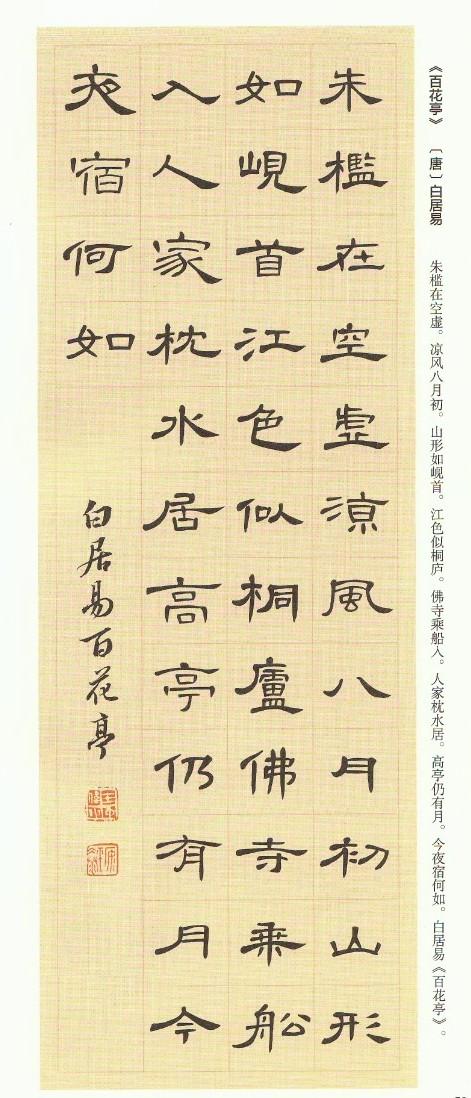 《百花亭》 〔唐〕白居易 朱槛在空虚。凉风八月初。山形如岘首。江色似桐庐。佛寺乘船入。人家枕水居。高亭仍有月。今夜宿何如。白居易《百花亭》。
朱檻在空虛涼風八月初山形
如峴首江色似桐廬佛寺乘船
入人家枕水居高亭仍有月今
夜宿何如
白居易百花亭